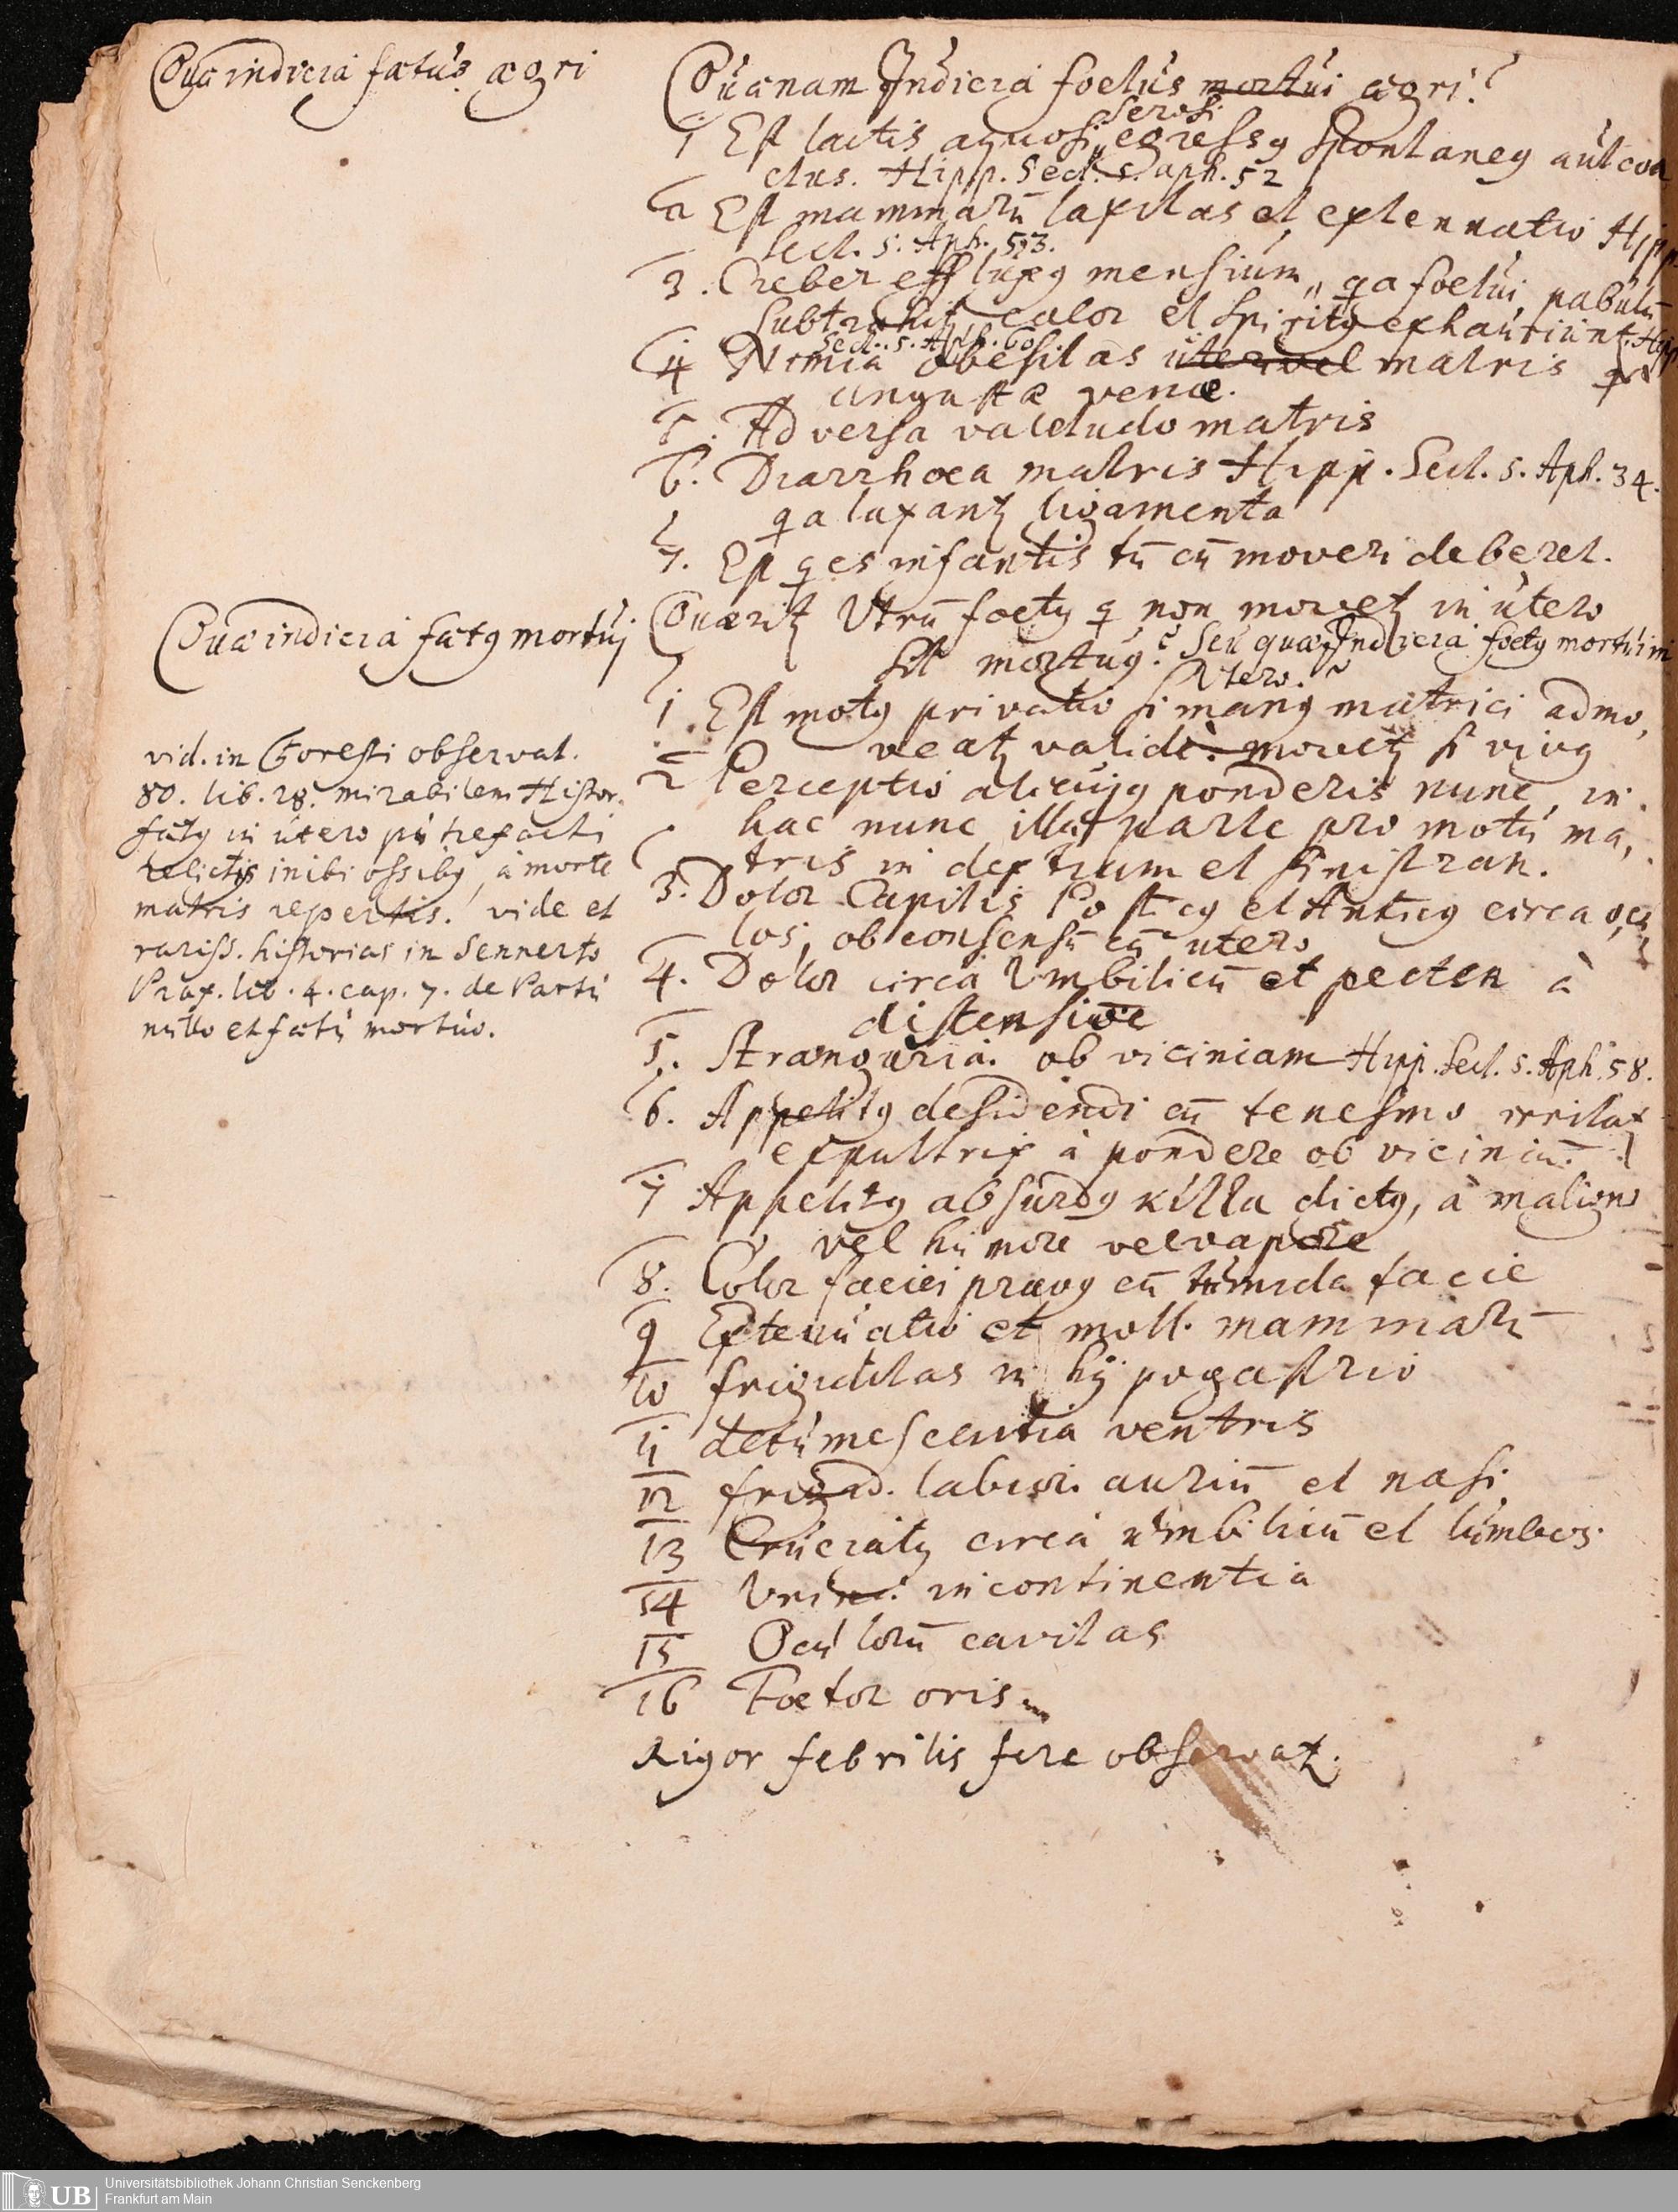 Quae indicia fatus aegri
Quaenam Indicia foetus mortui aegri?
serosi
1 Est lactis aquosi egressꝯ spontaneꝯ aut coa
ctus. Hipp. Sect. 5. aph. 52
2 Est mammarū laxitas et extennatio Hipp
Sect. 5. Aph. 53.
3. Creber effluxꝯ mensium, qa foetui pabulū
subtrahit calor et spiritꝯ exhauriunt. Hipp
Sect. 5. Aph. 60
4 Nimia obesitas uteri vel matris
angustae venae.
5. Adversa valetudo matris
6. Diarrhoea matris Hipp. Sect. 5. Aph. 34.
qa laxantʒ ligamenta
7. Est qes infantis tū cū moveri deberet.
Quae indicia fatꝯ mortuj
Quaeritʒ Utrū foetꝯ q non movetʒ in utero
sit mortuꝯ? Seu quae Indicia foetꝯ mortui in
Utero.
1. Est motꝯ privatio si manꝯ matrici admo,
veatʒ valide. movetʒ si vivꝯ
2 Perceptio alicujꝯ ponderis nunc, in
hac nunc illa parte pro motu ma,
tris in dextram et sinistram.
3. Dolor Capitis Posticꝯ et Anticꝯ circa ocu
los, ob consensū cū utero
4. Dolor circa Umbilicū et pecten à
distensione
5. Stranguria. ob viciniam Hipp. Sect. 5. Aph. 58.
6. Appetitꝯ desidendi cū tenesmo irritat
expultrix à pondere ob viciniā.
7 Appetitꝯ absurdꝯ κίττα dictꝯ, à maligno
vel humore vel vapore
8. Color faciei pravꝯ cū tumida facie
9 Extenuatio et moll. mammarū
10 frigiditas in hÿpogastrio
11 detumescentia ventris
12 frigid. labior. auriū et nasi
13 Cruciatꝯ circa umbilicū et lumbos.
14 Urinae incontinentia
15 Oculorū cavitas
16 Foetor oris
Rigor febrilis fere observatʒ.
vid. in Foresti observat.
80. lib. 28. mirabilem Histor.
fatꝯ in utero putrefacti
relictis inibi ossibꝯ, à morte
matris repertis. vide et
rariss. historias in Sennerto
Prax. lib. 4. cap. 7. de Partu
nullo et fatu mortuo.
Universitätsbibliothek Johann Christian Senckenberg
Frankfurt am Main
UB